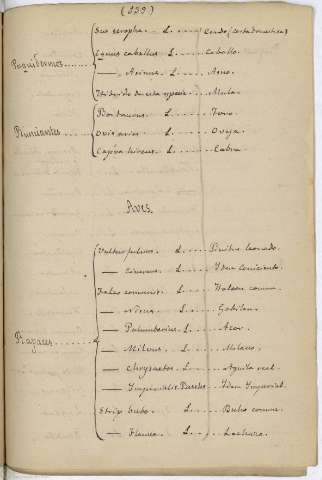 (533)
Sus scropha .. L. ..... Cerdo, (
Equus caballus L. ..... Caballo.
Paquidermos ..... — Asinus L. .... Asno.
Mula.
Bos taurus L. .... Toro
Rumiantes ..... Ovis aries L. ..... Oveja
Capra hircus L. ..... Cabra
Aves.
Vultur fulvus L. .....
— cinereus L. ..... Idem ceniciento.
Falco communis L. ..... Halcon comun.
— nisus L. ..... Gabilan.
— Palumbarius L. .... Azor.
Rapaces ..... — Milvus L. ..... Milano.
— Chrysaetos L. .... Aguila real.
— Imperialis ..... Idem Imperial.
Strix bubo L. ..... Buho comun.
— Flamea L. ..... Lechuza.